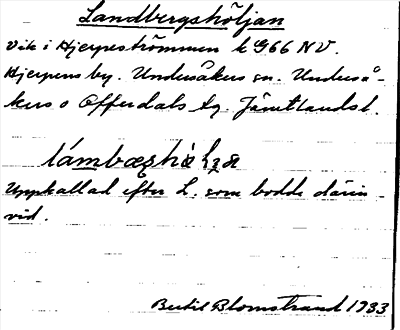 Landbergshöljan
Vik i Hjerpeströmmen k 966 NV.
Hjerpens by. Undersåkers sn. Unders­å-
kers o Offerdals tg. Jämtlands l.
Uppkallad efter L. som bodde därin-
vid.
Bertil Blomstrand 1933